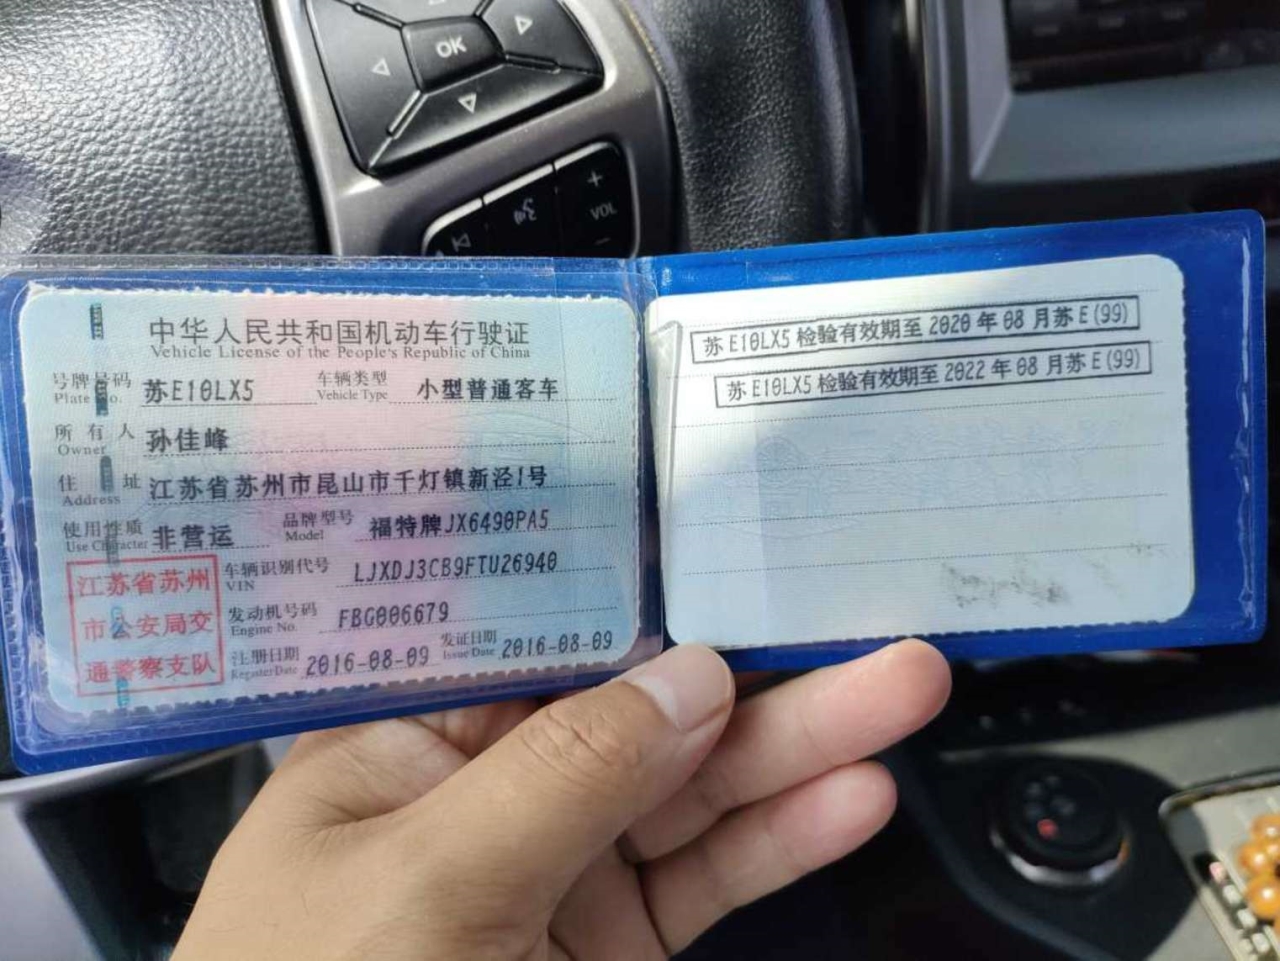 OK
VOL
中华人民共和国机动车行驶证
Vehicle License of the People's Republic of China
号牌号码 苏E10LX5 车辆类型 小型普通客车
Plate No. Vehicle Type
所有人 孙佳峰
Owner
住址 江苏省苏州市昆山市千灯镇新泾1号
Address
使用性质 非营运 品牌型号 福特牌JX6490PA5
Use Character Model
江苏省苏州
市公安局交
通警察支队
车辆识别代号 LJXDJ3CB9FTU26940
VIN
发动机号码 FBG006679
Engine No.
注册日期 2016-08-09 发证日期 2016-08-09
Register Date Issue Date
苏E10LX5检验有效期至2020年08月苏E(99)
苏E10LX5检验有效期至2022年08月苏E(99)